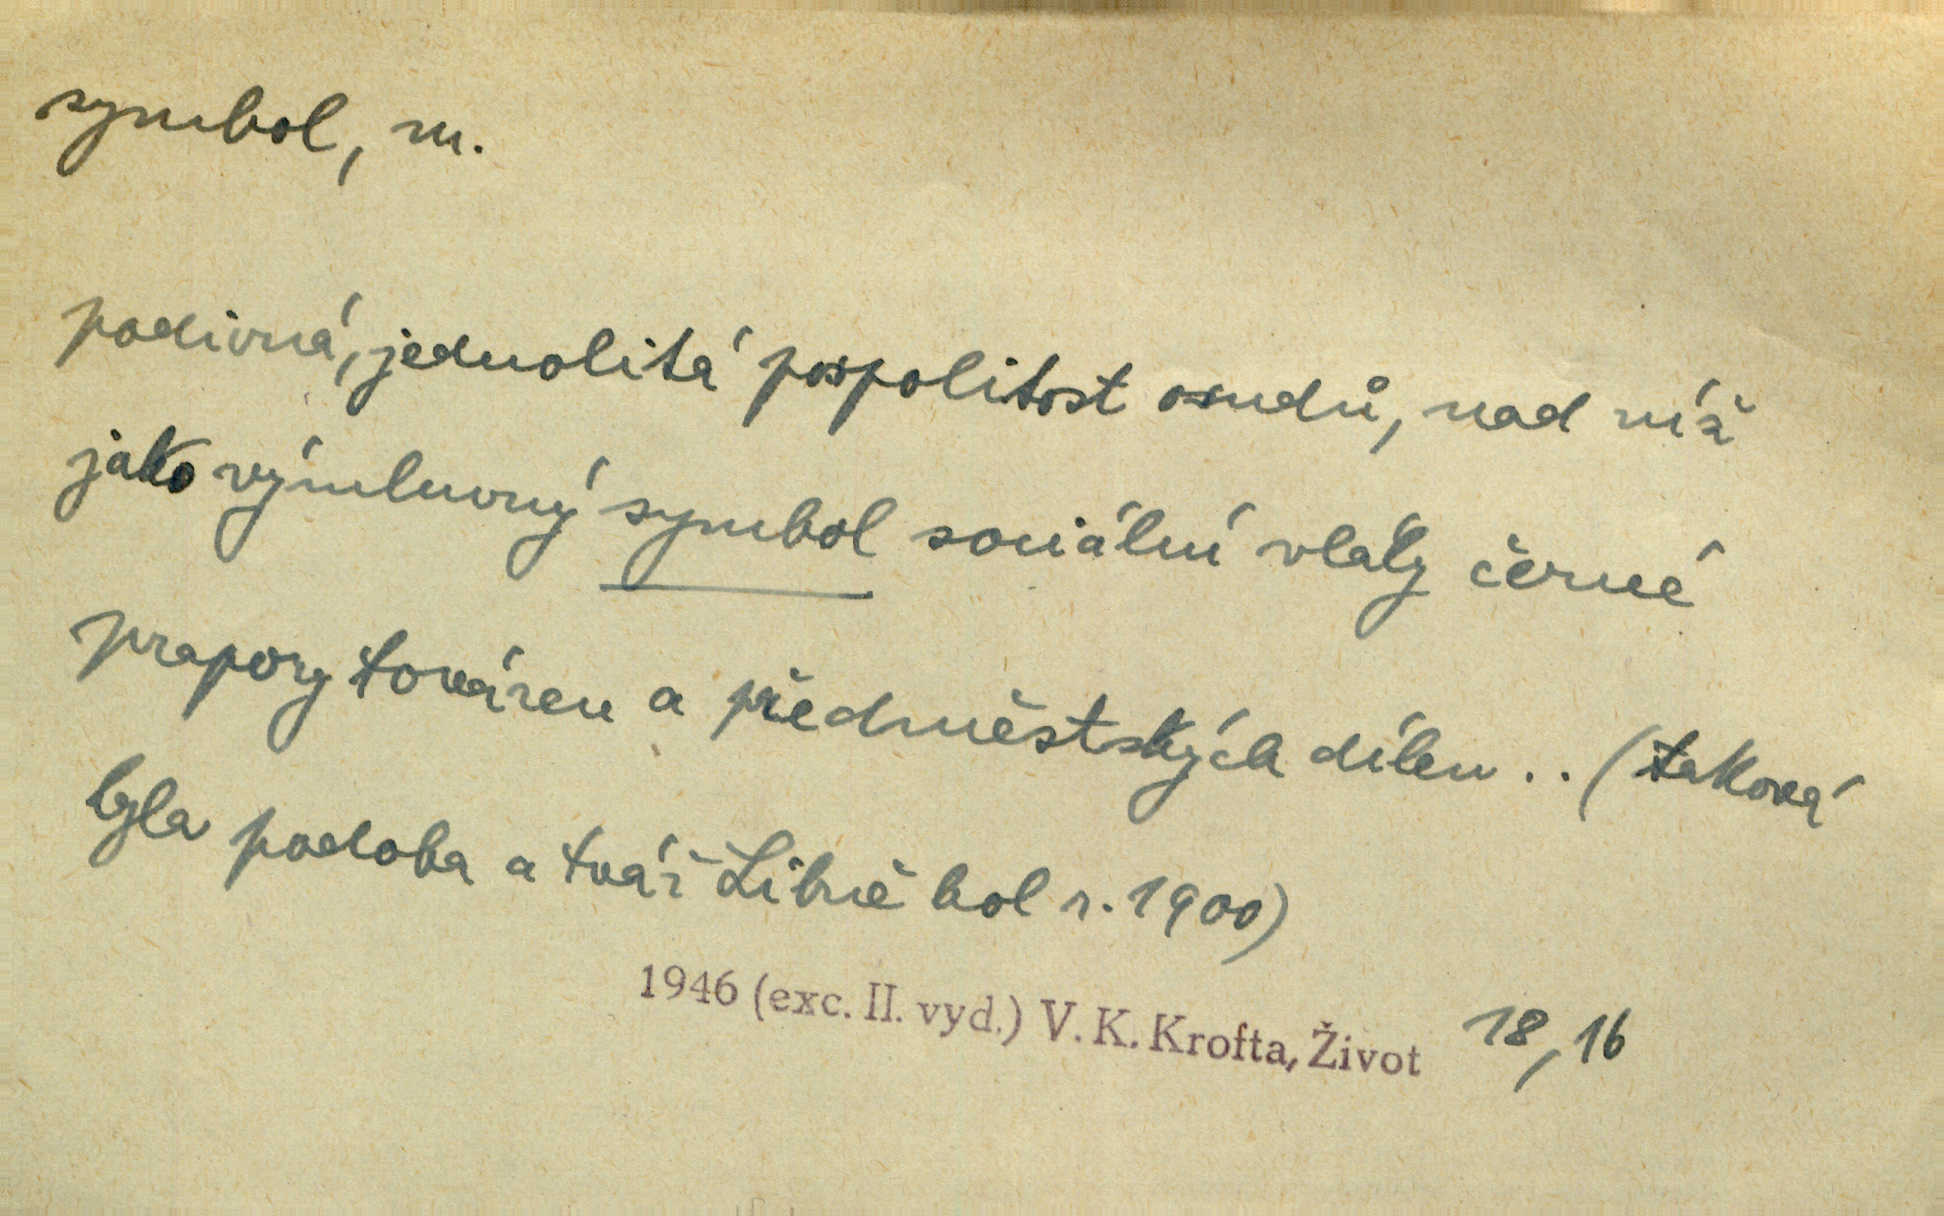 symbol, m.
podivná, jednolitá pospolitost osudů, nad níž
jako výmluvný symbol sociální vlály černé
prapory továren a předměstských dílen . . (taková
byla podoba a tvář Libně kol r. 1900)
1946 (exc. II. vyd.) V. K. Krofta, Život 18, 16